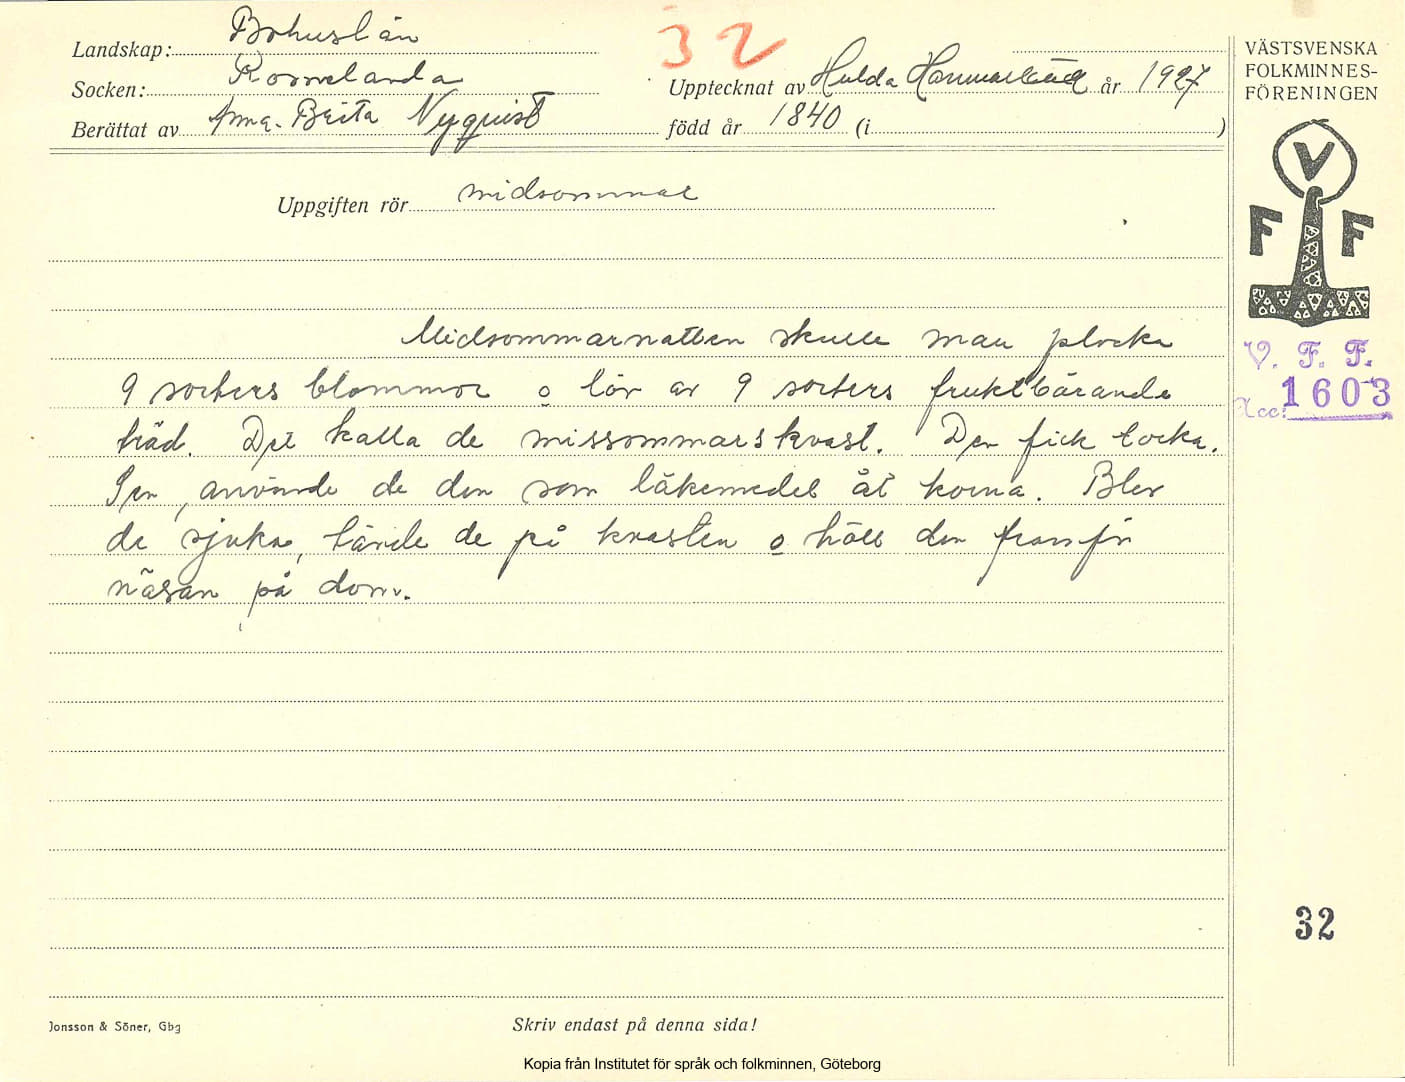 32
Landskap: Bohuslän
Socken: Romelanda
Upptecknat av Hulda Hammarbäck år 1927
Berättat av Anna-Brita Nyquist född år 1840 (i )
Uppgiften rör midsommar
Midsommarnatten skulle man plocka
9 sorters blommor o löv av 9 sorters fruktbärande
träd. Det kalla de missommarskvast. Den fick torka.
Sen, använde de den som läkemedel åt korna. Blev
de sjuka, tände de på kvasten o höll den framför
näsan på dom.
VÄSTSVENSKA
FOLKMINNES-
FÖRENINGEN
V
F F
V. F. F.
Acc: 1603
32
Jonsson & Söner, Gbg
Skriv endast på denna sida!
Kopia från Institutet för språk och folkminnen, Göteborg